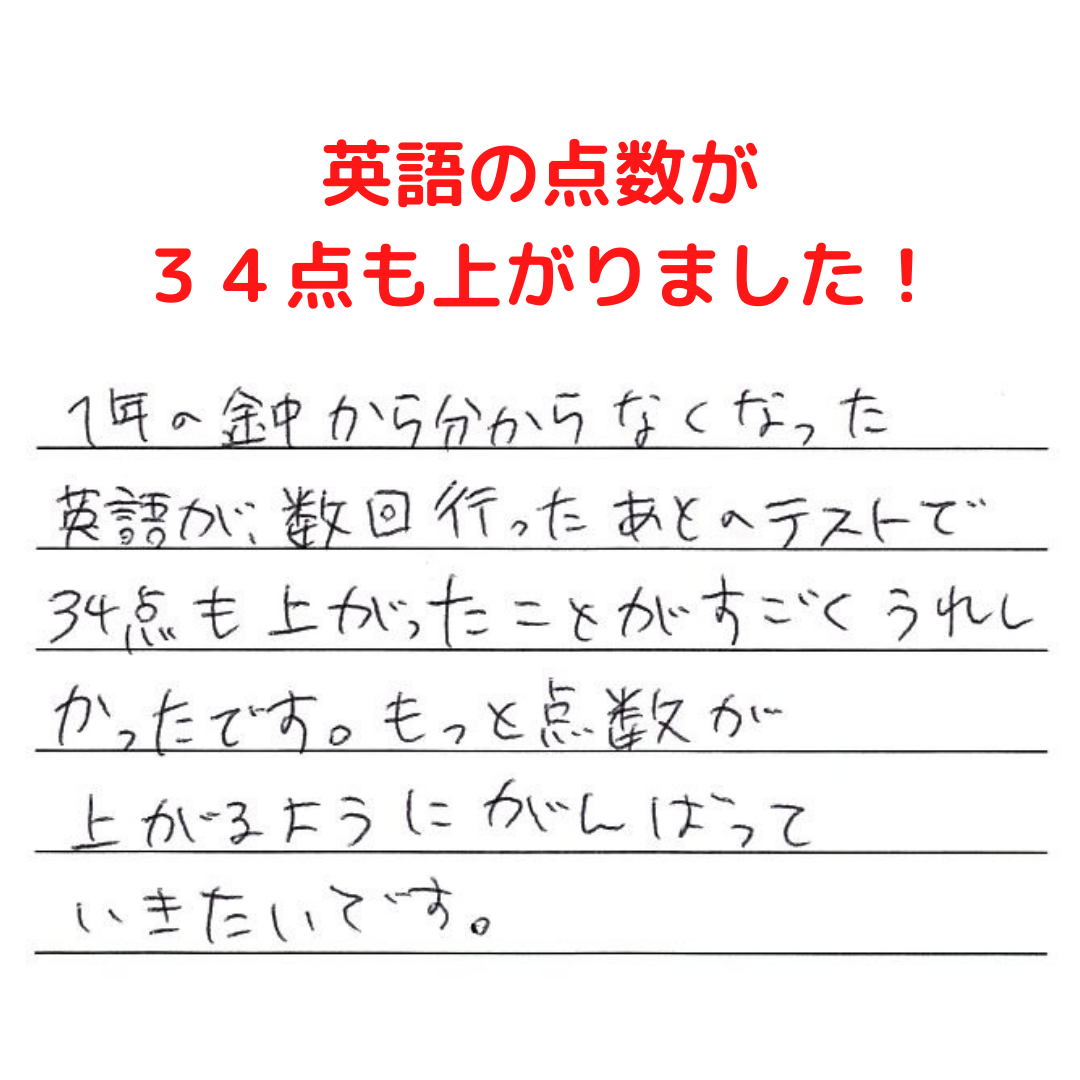 英語の点数が
３４点も上がりました！
1年の途中から分からなくなった
英語が、数回行ったあとのテストで
34点も上がったことがすごくうれし
かったです。もっと点数が
上がるようにがんばって
いきたいです。